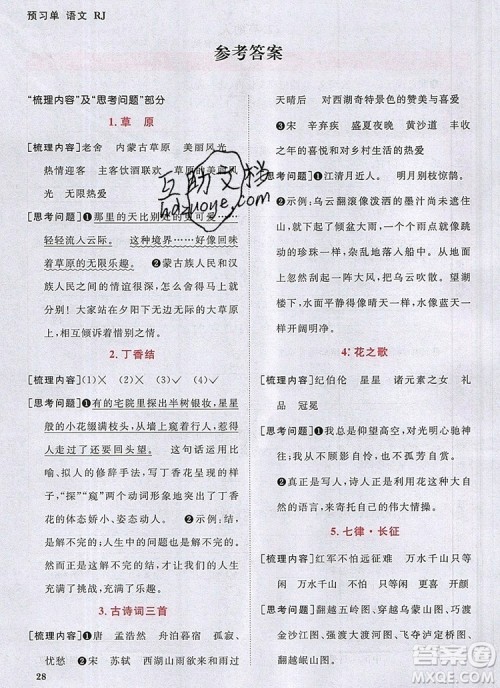 预习单 语文 RJ
参考答案
“梳理内容”及“思考问题”部分
1. 草 原
[梳理内容]老舍 内蒙古草原 美丽风光
热情迎客 主客饮酒联欢 草原的美丽风
光 无限热爱
[思考问题]❶那里的天比别处的更可爱……
轻轻流入云际。 这种境界……好像回味
着草原的无限乐趣。 ❷蒙古族人民和汉
民族人民之间的情谊深厚,怎么舍得马上
就分别!大家站在夕阳下无边无际的大草原
上,互相倾诉着惜别之情。
2. 丁香结
[梳理内容](1)× (2)✓ (3)✓ (4)✓
[思考问题]❶有的宅院里探出半树银妆,星星
般的小花缀满枝头,从墙上窥着行人,惹得
人走过了还要回头望。 这句话运用比
喻、拟人的修辞手法,写了丁香花开的样
子,“探”“窥”两个动词形象地突出了丁香
花的动态娇小、安静之态。 ❷示例:结,是
解不完的;人生中的问题也是解不完的,不
然,岂不太平淡无味了吗?
3. 古诗词三首
[梳理内容]唐 孟浩然 停船靠岸 孤寂、
忧愁 宋 苏轼 西湖山水 风雨过后
28
天晴后 对西湖奇特景色的赞美与喜爱
❸宋 辛弃疾 盛夏夜晚 黄沙道 丰
收之年的喜悦和对乡村生活的热爱
[思考问题]❶江清月近人。 明月别枝惊鹊。
❷示例:乌云翻滚像泼洒的墨汁尚未遮住
天边的山峦,顷刻间倾盆大雨,水花四溅就
像跳动的珍珠一样,杂乱地落入船中。忽
然间狂风席卷大地,把乌云吹散,西湖的湖
水如镜面一样,水天一样的蓝,水天一样的
明媚温柔。
4. 花之歌
[梳理内容]纪伯伦 星星 诸元素之女 礼
品 冠冕
[思考问题]❶我总是仰望高空,对光明心驰神
往;我从不顾影自怜,也不孤芳自赏。 ❷
真正的诗人,以大无畏的气魄写诗,对自然
有真正的敬畏和无限的热爱。
5. 七律·长征
[梳理内容]红军不怕远征难 万水千山只等
闲 万水千山 远征难
[思考问题]❶翻越五岭、翻越乌蒙、巧渡金沙
江、强渡大渡河、翻越岷山。 ❷示例:这两
互助文档
hdzuoye.com
答案圈
MXQE.COM